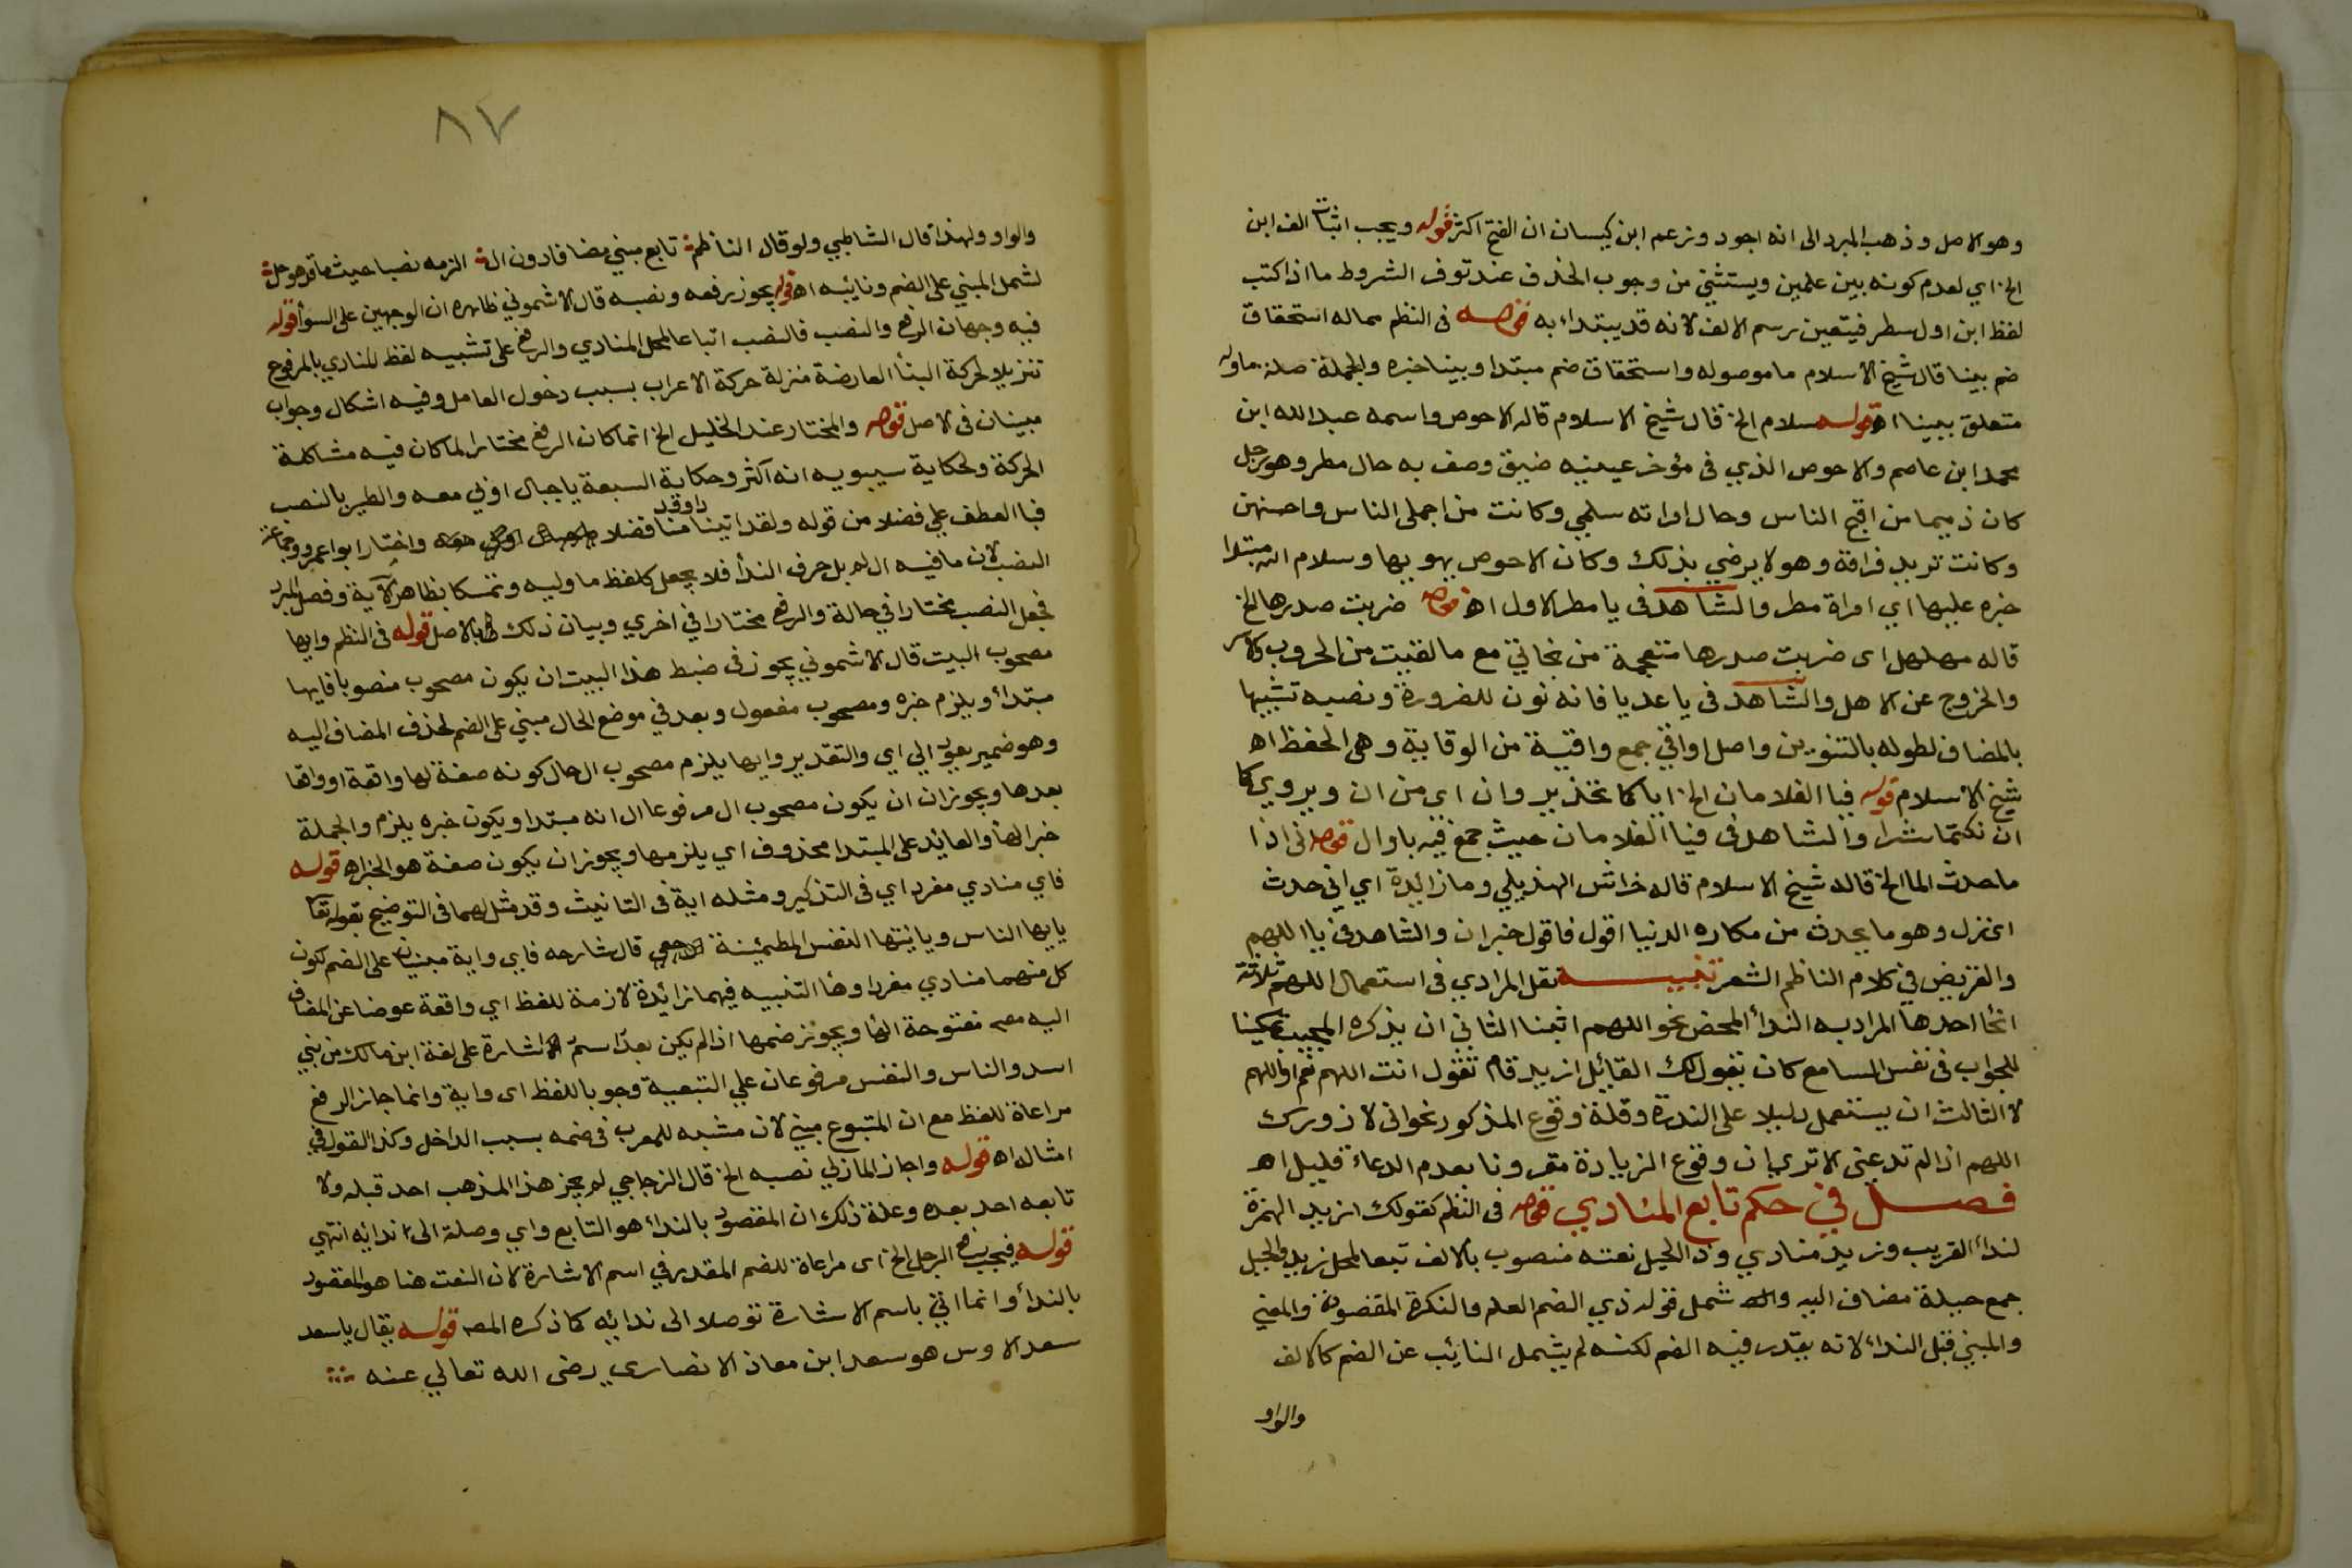 وهو الاصل وذهب المبرد الى انه اجود وزعم ابن كيسان ان الفتح اكثر قوله ويجب اثبات الف ابن
الخ اي لعدم كونه بين علمين ويستثنى من وجوب الحذف عند توفر الشروط ما اذا كتب
لفظ ابن اول سطر فيتعين رسم الالف لانه قد يبتداء به قوله في النظم مماله استحقاق
ضم بينا قال شيخ الاسلام ما موصوله واستحقاق ضم مبتدا وبينا خبره والجملة صلة ما وله
متعلق ببينا اه قوله سلام الخ قال شيخ الاسلام قاله الاحوص واسمه عبد الله ابن
محمد ابن عاصم والاحوص الذي في مؤخر عينيه ضيق وصف به حال مطر وهو رجل
كان ذميما من اقبح الناس وحال امراته سلمي وكانت من اجمل الناس واحسنهن
وكانت تريد فراقه وهو لا يرضي بذلك وكان الاحوص يهويها وسلام الله مبتدا
خبره عليها اي امراة مطر والشاهد في يا مطر الاول اه قوله ضربت صدرها الخ
قاله مهلهل اى ضربت صدرها متعجبة من نجاتي مع ما لقيت من الحروب والاسر
والخروج عن الاهل والشاهد في يا عديا فانه نون للضرورة ونصبه تشبيها
بالمضاف لطوله بالتنوين واصل اواقي جمع واقية من الوقاية وهي الحفظ اه
شيخ الاسلام قوله فيا الغلامان الخ اياكما تحذير وان اي من ان ويروي كما
ان تكتما شرا والشاهد في فيا الغلامان حيث جمع فيه يا وال قوله اني اذا
ما حدث الما الخ قاله شيخ الاسلام قاله خراش الهذيلي وما زائدة اي اني حدث
اى نزل وهو ما يحدث من مكاره الدنيا اقول فاقول خبر ان والشاهد في يا اللهم
والقريض في كلام الناظم الشعر تنبيه نقل المرادي في استعمال اللهم ثلاثة
انحا احدها المراد به النداء المحض نحو اللهم اثبنا الثاني ان يذكره المجيب تمكينا
للجواب في نفس السامع كان يقول لك القائل ازيد قام تقول انت اللهم نعم او اللهم
لا الثالث ان يستعمل دليلا على الندرة وقلة وقوع المذكور نحو انى لازورك
اللهم اذا لم تدعني الا تري ان وقوع الزيادة مقرونا بعدم الدعاء قليل اه
فصل في حكم تابع المنادي قوله في النظم كقولك ازيد الهمزة
لنداء القريب وزيد منادي وذا الحيل نعته منصوب بالالف تبعا لمحل زيد والحيل
جمع حيلة مضاف اليه واله شمل قوله ذي الضم العلم والنكرة المقصودة والمعني
والمبني قبل النداء لانه يقدر فيه الضم لكنه لم يشمل النائب عن الضم كالالف
والواو
٨٧
والواو ولهذا قال الشاطبي ولو قال الناظم تابع مبني مضافا دون ال الزمه نصبا حيث ما قد هو حل
لشمل المبني على الضم ونائبه اه قوله يجوز رفعه ونصبه قال الاشموني ظاهره ان الوجهين على السوأ قوله
فيه وجهان الرفع والنصب فالنصب اتباعا لمحل المنادي والرفع على تشبيه لفظ المنادي بالمرفوع
تنزيلا لحركة البنأ العارضة منزلة حركة الاعراب بسبب دخول العامل وفيه اشكال وجواب
مبينان في الاصل قوله والمختار عند الخليل الخ انما كان الرفع مختارا لما كان فيه مشاكلة
الحركة ولحكاية سيبويه انه اكثر وحكاية السبعة يا جبال اوبي معه والطير بالنصب
فبا العطف علي فضلا من قوله ولقد اتينا داوود منا فضلا واختار ابو اعمرو وجماعة
النصب لان ما فيه ال لم يل حرف الندأ فلا يجعل كلفظ ما وليه وتمسكا بظاهر الآية وفصل المبرد
فجعل النصب مختارا في حالة والرفع مختارا في اخري وبيان ذلك بالاصل قوله في النظم وايها
مصحوب البيت قال الاشموني يجوز في ضبط هذا البيت ان يكون مصحوب منصوبا فايها
مبتدأ ويلزم خبره ومصحوب مفعول وبعد في موضع الحال مبني على الضم لحذف المضاف اليه
وهو ضمير يعود الي اي والتقدير وايها يلزم مصحوب ال حال كونه صفة لها واقعة او واقعا
بعدها ويجوز ان يكون مصحوب ال مرفوعا ال انه مبتدا ويكون خبره يلزم والجملة
خبر ايها والعايد على المبتدا محذوف اي يلزمها ويجوز ان يكون صفة هو الخبر اه قوله
فاي منادي مفرد اي في التذكير ومثله اية في التانيث وقد مثل لهما في التوضيح بقوله تعا
يا يها الناس ويا يتها النفس المطمئنة قال شارحه فاي واية مبنيان على الضم لكون
كل منهما منادي مفردا وها التنبيه فيهما زائدة لازمة للفظ اي واقعة عوضا عن المضاف
اليه معه مفتوحة الها ويجوز ضمها اذا لم يكن بعدا اسم الاشارة على لغة ابن مالك من بني
اسد والناس والنفس مرفوعان علي التبعية وجوبا للفظ اى واية وانما جاز الرفع
مراعاة للفظ مع ان المتبوع مبني لان مشبه للمعرب في ضمه بسبب الداخل وكذا القول في
امثاله اه قوله واجاز المازني نصبه الخ قال الزجاجي لم يجز هذا المذهب احد قبله ولا
تابعه احد بعده وعلة ذلك ان المقصود بالنداء هو التابع واي وصلة الى ندائه انتهي
قوله فيجب رفع الرجل الخ اى مراعاة للضم المقدر في اسم الاشارة لان النعت هنا هو المقصود
بالندأ وانما اتي باسم الاشارة توصلا الى ندائه كما ذكره المصـ قوله يقال يا سعد
سعد الاوس هو سعد ابن معاذ الانصاري رضى الله تعالي عنه